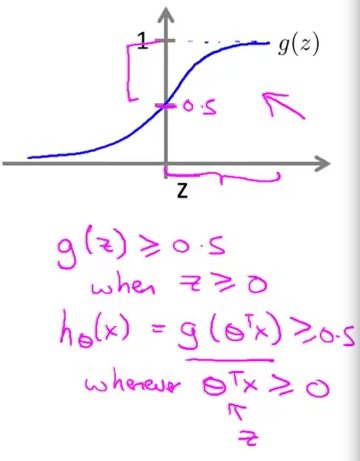 1
g(z)
0.5
z
g(z) ≥ 0.5
when z ≥ 0
hθ(x) = g(θᵀx) ≥ 0.5
whenever θᵀx ≥ 0
z